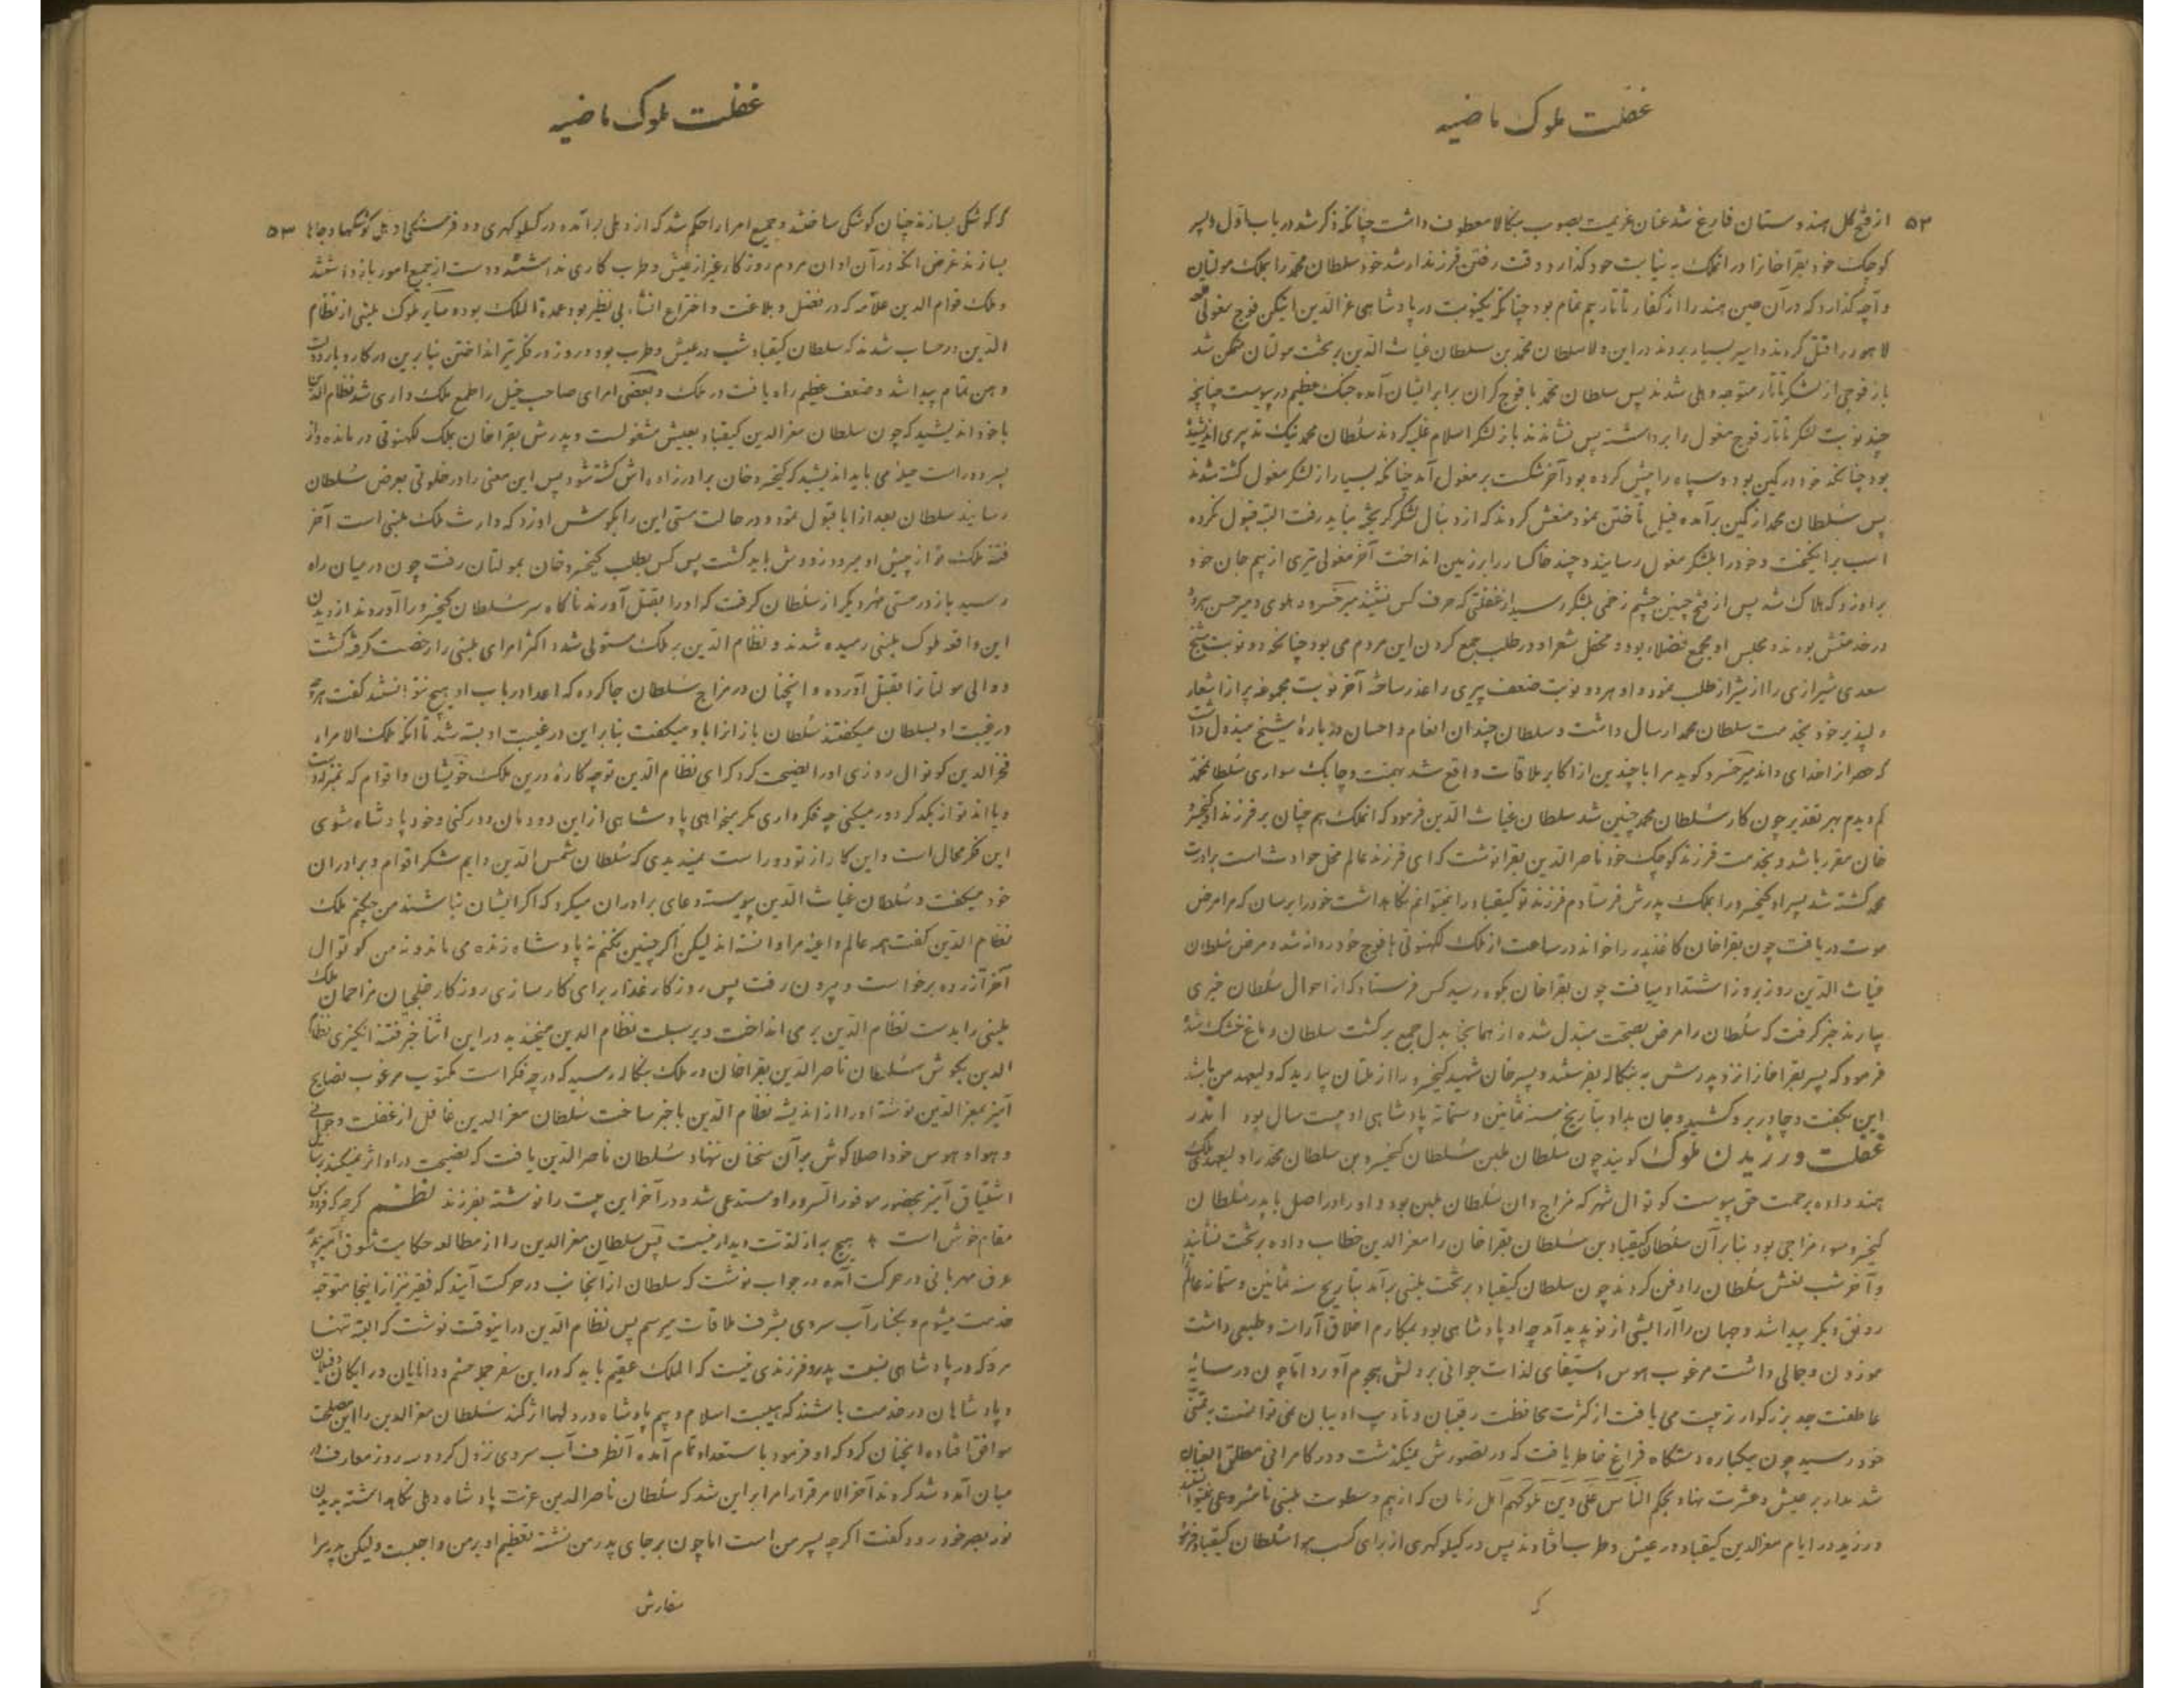 غفلت ملوک ماضیه
۵۲
از فتح کل هندوستان فارغ شد عنان عزیمت بصوب بنکالا معطوف داشت چنانکه ذکر شد در باب اول و پسر
کوچک خود بقراخانرا در انملک به نیابت خود کذارد و وقت رفتن فرزند ارشد خود سلطان محمد را بملک مولتان
و آچه کذارد که در آن حین هند را از کفار تاتار بیم تمام بود چنانکه یکنوبت در پادشاهی عزالدین فوج مغولی
لاهور را قتل کردند و اسیر بسیار بردند در این ولا سلطان محمد بن سلطان غیاث الدین بر تخت مولتان متمکن شد
باز فوجی از لشکر تاتار متوجه دهلی شدند پس سلطان محمد با فوج کران برابر ایشان آمده جنک عظیم در پیوست چنانچه
چند نوبت لشکر تاتار فوج مغول را برداشته پس نشاندند باز لشکر اسلام غلبه کردند سلطان محمد نیک تدبیری اندیشیده
بود چنانکه خود در کمین بود و سپاه را پیش کرده بود آخر شکست بر مغول آمد چنانکه بسیار از لشکر مغول کشته شدند
پس سلطان محمد از کمین برآمده فیل تاختن نمود منعش کردند که از دنبال لشکر کریخته نباید رفت البته قبول نکرده
اسب برانکیخت و خود را بلشکر مغول رسانید و چند خاکسار را بر زمین انداخت آخر مغولی تیری از بیم جان خود
براو زد که هلاک شد پس از فتح چنین چشم زخمی بلشکر رسید از غفلتی که حرف کس نشنید میر خسرو دهلوی و میر حسن
در خدمتش بودند و مجلس او مجمع فضلاء بود و محفل شعرا و در طلب جمع کردن این مردم می بود چنانکه دو نوبت شیخ
سعدی شیرازی را از شیراز طلب نمود و او هر دو نوبت ضعف پیری را عذر ساخته آخر نوبت مجموعه پر از اشعار
دلپذیر خود بخدمت سلطان محمد ارسال داشت و سلطان چندان انعام و احسان در بارهٔ شیخ مبذول داشت
که حصر از اخدای داند میر خسرو کوید مرا با چندین از اکابر ملاقات واقع شد بهمت و چابک سواری سلطانمحمد
کم دیدم بهر تقدیر چون کار سلطان محمد چنین شد سلطان غیاث الدین فرمود که انملک هم چنان بر فرزند او کیخسرو
خان مقرر باشد و بخدمت فرزند کوچک خود ناصر الدین بقرا نوشت که ای فرزند عالم محل حوادث است برادرت
محمد کشته شد پسر او کیخسرو را بملک پدرش فرستادم فرزند تو کیقباد را نمیتوانم نکاهداشت خود را برسان که مرا مرض
موت دریافت چون بقراخان کاغذ پدر را خواند در ساعت از ملک لکهنوتی با فوج خود روانه شد و مرض سلطان
غیاث الدین روز بروز اشتداد مییافت چون بقراخان بکوه رسید کس فرستاد که از احوال سلطان خبری
بیارند خبر کرفت که سلطان را مرض بصحت مبدل شده از همانجا بدل جمع برکشت سلطان دماغ خشک شده
فرمود که پسر بقراخانرا نزد پدرش به بنکاله بفرستند و پسر خان شهید کیخسرو را از ملتان بیارید که ولیعهد من باشد
این بکفت و چادر بر رو کشید و جان بداد بتاریخ سنه ثمانین و ستمائة پادشاهی او بیست سال بود اندر
غفلت ورزیدن ملوک کویند چون سلطان بلبن سلطان کیخسرو بن سلطان محمد را ولیعهد ملک
هند داده برحمت حق پیوست کوتوال شهر که مزاج دان سلطان بلبن بود و او را در اصل با پدر سلطان
کیخسرو سوء مزاجی بود بنابر آن سلطان کیقباد بن سلطان بقراخان را معز الدین خطاب داده بر تخت نشانید
و آخر شب نعش سلطان را دفن کردند چون سلطان کیقباد بر تخت بلبنی برآمد بتاریخ سنه ثمانین و ستمائة عالم
رونق دیکر پیدا شد و جهان را آرایشی از نو پدید آمد چه او پادشاهی بود بمکارم اخلاق آراسته و طبعی داشت
موزون و جمالی داشت مرغوب هوس استیفای لذات جوانی بر دلش هجوم آورد اما چون در سایهٔ
عاطفت جد بزرکوار تربیت می یافت از کثرت محافظت رقیبان و تادیب ادیبان نمی توانست بتمنی
خود رسید چون بیکباره دستکاه فراغ خاطر یافت که در تصورش نمیکذشت و در کامرانی مطلق العنان
شد مدار بر عیش و عشرت نهاد بحکم الناس علی دین ملوکهم اهل زمان که از بیم و سطوت بلبنی نامشروعی نمیتوانستند
ورزید در ایام معزالدین کیقباد در عیش و طرب افتادند پس در کیلوکهری از برای کسب هوا سلطان کیقباد فرمود
ک
غفلت ملوک ماضیه
۵۳
که کوشکی بسازند چنان کوشکی ساختند و جمیع امرا را حکم شد که از دهلی برآمده در کیلوکهری و دو فرسنکی دهلی کوشکها و جاها
بسازند غرض انکه در آن اوان مردم روزکار غیر از عیش و طرب کاری نداشتند و دست از جمیع امور بازداشتند
و ملک قوام الدین علاقه که در فضل و بلاغت و اختراع انشاء بی نظیر بود عمدة الملک بوده سایر ملوک بلبنی از نظام
الدین در حساب شدند که سلطان کیقباد شب در عیش و طرب بود و روز در فکر تیر انداختن بنابرین در کار و بار دولت
وهن تمام پیدا شد و ضعف عظیم راه یافت در ملک و بعضی امرای صاحب خیل را طمع ملک داری شد نظام الدین
با خود اندیشید که چون سلطان معز الدین کیقباد بعیش مشغولست و پدرش بقراخان بملک لکهنوتی درمانده و از
پسر دور است حیلهٔ می باید اندیشید که کیخسرو خان برادرزاده اش کشته شود پس این معنی را در خلوتی بعرض سلطان
رسانید سلطان بعد از ابا قبول نمود و در حالت مستی این را بکوشش او زد که وارث ملک بلبنی است آخر
فتنهٔ ملک تو از پیش او میرود زودش باید کشت پس کس بطلب کیخسرو خان بمولتان رفت چون در میان راه
رسید باز در مستی مهر دیکر از سلطان کرفت که او را بقتل آورند ناکاه سر سلطان کیخسرو را آوردند از دیدن
این واقعه ملوک بلبنی رمیده شدند و نظام الدین بر ملک مستولی شد و اکثر امرای بلبنی را رخصت کرفته کشت
و والی مولتانرا بقتل آورده و انچنان در مزاج سلطان جا کرده که اعدا در باب او هیچ نتوانستند کفت هر چه
در غیبت او بسلطان میکفتند سلطان باز انرا باو میکفت بنابراین در غیبت او بسته شد تا انکه ملک الامراء
فخر الدین کوتوال روزی او را نصیحت کرد که ای نظام الدین تو چه کارهٔ درین ملک خویشان و اقوام که بمنزله دست
و پا اند تو از یکدکر دور میکنی چه فکر داری مکر میخواهی پادشاهی از این دودمان دور کنی و خود پادشاه شوی
این فکر محال است و این کار از تو دور است نمیدیدی که سلطان شمس الدین دایم شکر اقوام و برادران
خود میکفت و سلطان غیاث الدین پیوسته دعای برادران میکرد که اکر ایشان نباشند من چکنم ملک
نظام الدین کفت همه عالم داعیهٔ مرا دانسته اند لیکن اکر چنین نکنم نه پادشاه زنده می ماند و نه من کوتوال
آخر آزرده برخواست و بیرون رفت پس روزکار غدار برای کارسازی روزکار خلجیان مزاحمان ملک
بلبنی را بدست نظام الدین بر می انداخت و بر سبلت نظام الدین میخندید در این اثنا خبر فتنه انکیزی نظام
الدین بکوش سلطان ناصر الدین بقراخان در ملک بنکاله رسید که در چه فکر است مکتوب مرغوب نصایح
آمیز بمعز الدین نوشته او را از اندیشه نظام الدین باخبر ساخت سلطان معز الدین غافل از غفلت و جوانی
و هوا و هوس خود اصلا کوش بر آن سخنان ننهاد سلطان ناصر الدین یافت که نصیحت در او اثر نمیکند رسایل
اشتیاق آمیز بحضور موفور السرور او مستدعی شد و در آخر این بیت را نوشته بفرزند نظم کرچه که فردوس
مقام خوش است * هیچ به از لذت دیدار نیست پس سلطان معز الدین را از مطالعه حکایت شوق آمیز پدر
عرق مهربانی در حرکت آمده در جواب نوشت که سلطان از انجانب در حرکت آیند که فقیر نیز از اینجا متوجه
خدمت میشوم و بکنار آب سردی بشرف ملاقات میرسم پس نظام الدین در اینوقت نوشت که البته تنها
مرو که در پادشاهی نسبت پدر و فرزندی نیست که الملک عقیم باید که در این سفر جمله حشم و دانایان در ارکان
و پادشاهان در خدمت باشند که هیبت اسلام و بیم پادشاه در دلها اثر کند سلطان معز الدین را این مصلحت
موافق افتاده انچنان کرد که او فرمود با استعداد تمام آمده آنطرف آب سردی نزول کرد و سه روز معارف در
میان آمد و شد کردند آخر الامر قرار امر بر این شد که سلطان ناصر الدین عزت پادشاه دهلی نکاهداشته بدیدن
نور بصر خود رود کفت اکرچه پسر من است اما چون بر جای پدر من نشسته تعظیم او بر من واجبست ولیکن پدر را
سفارش